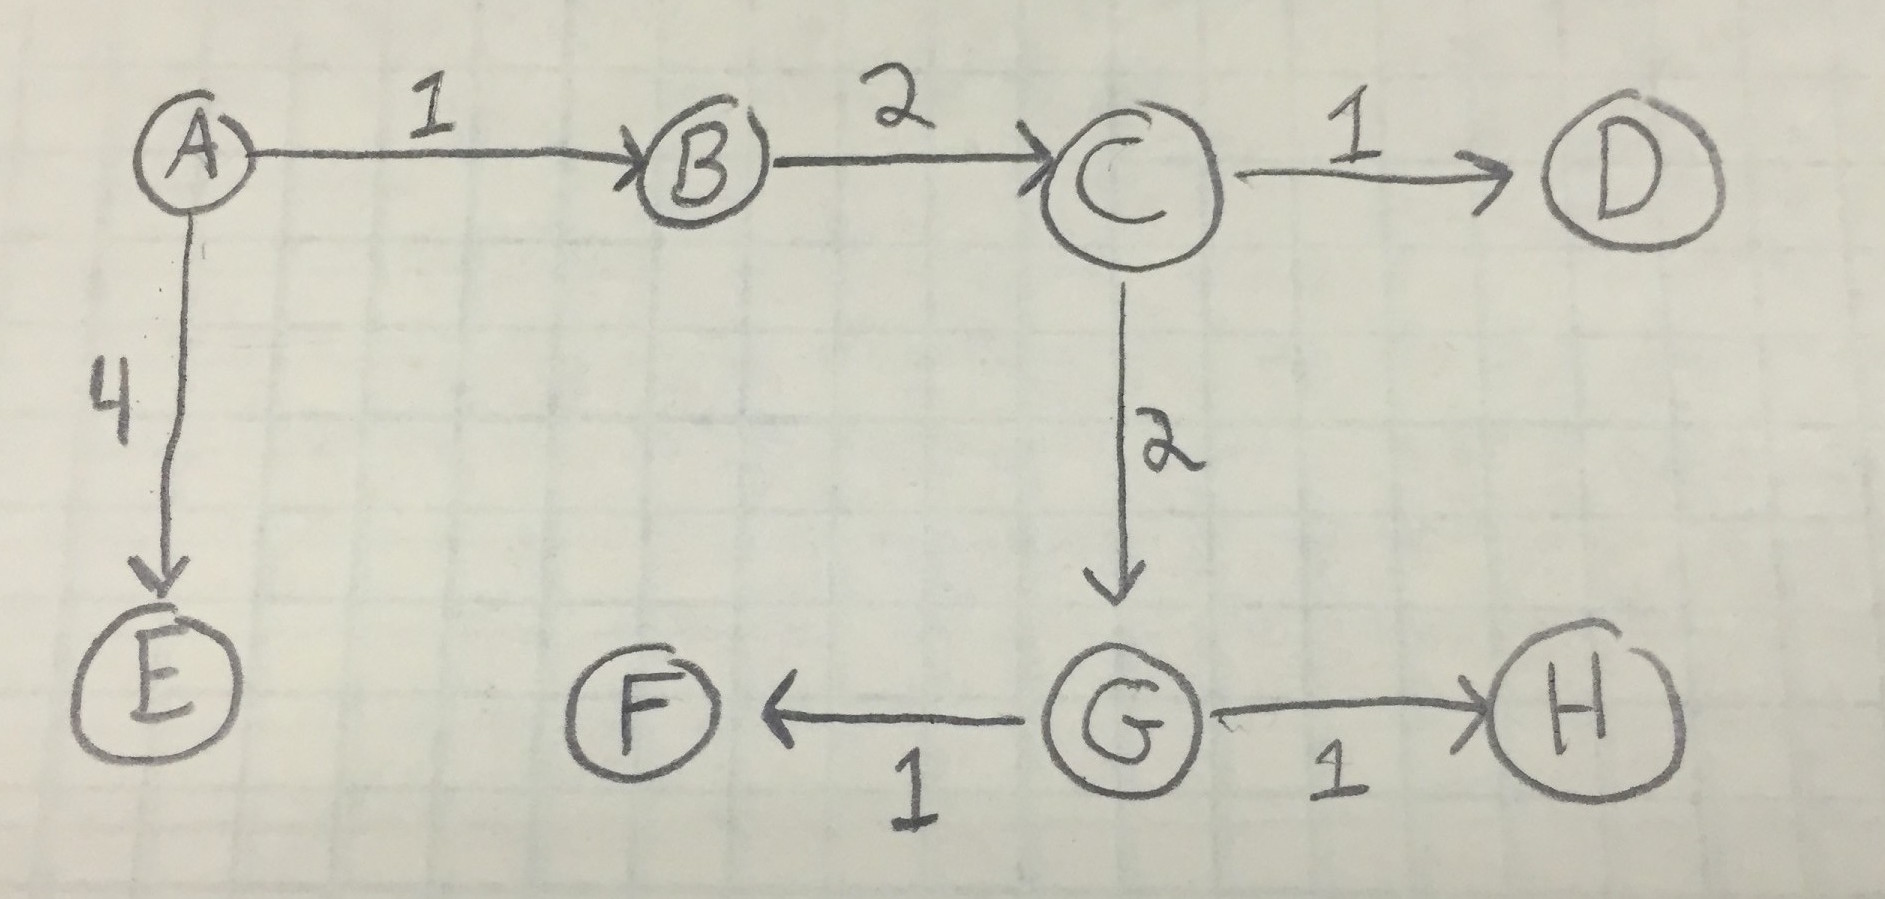 A 1 B 2 C 1 D
4 2
E F 1 G 1 H